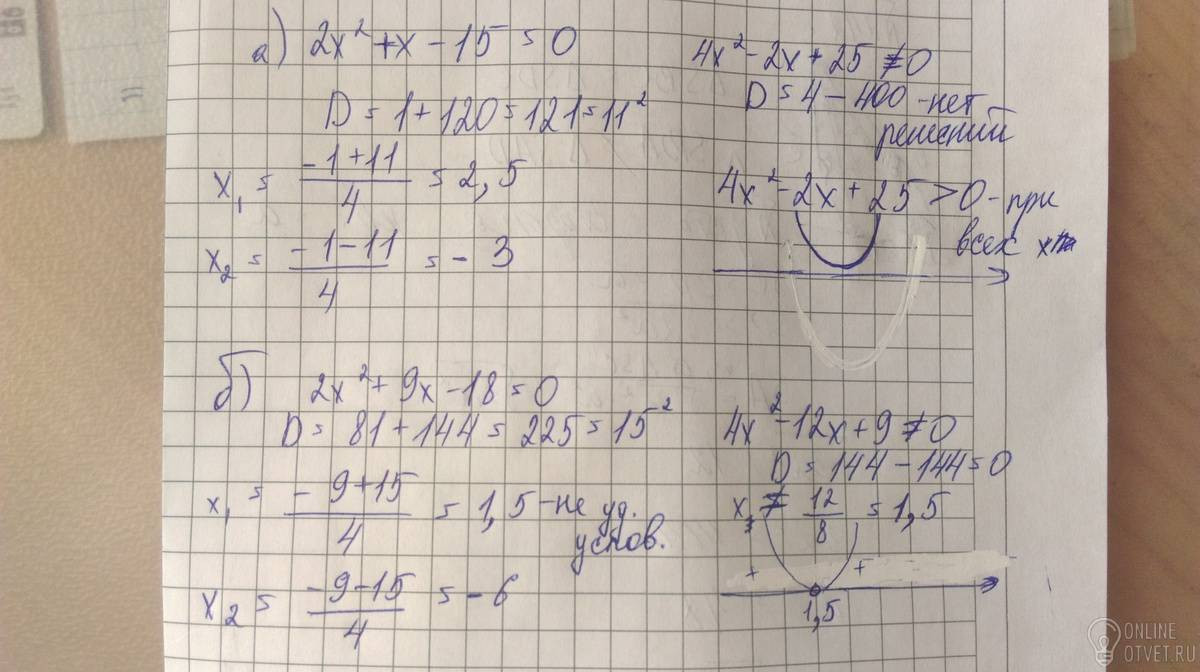 а) 2x² + x - 15 = 0
D = 1 + 120 = 121 = 11²
x₁ = (-1+11)/4 = 2,5
x₂ = (-1-11)/4 = -3
4x² - 2x + 25 ≠ 0
D = 4 - 400 - нет
решений
4x² - 2x + 25 > 0 - при
всех x
б) 2x² + 9x - 18 = 0
D = 81 + 144 = 225 = 15²
x₁ = (-9+15)/4 = 1,5 - не уд.
услов.
x₂ = (-9-15)/4 = -6
4x² - 12x + 9 ≠ 0
D = 144 - 144 = 0
x ≠ 12/8 = 1,5
+ +
1,5
ONLINE
OTVET.RU